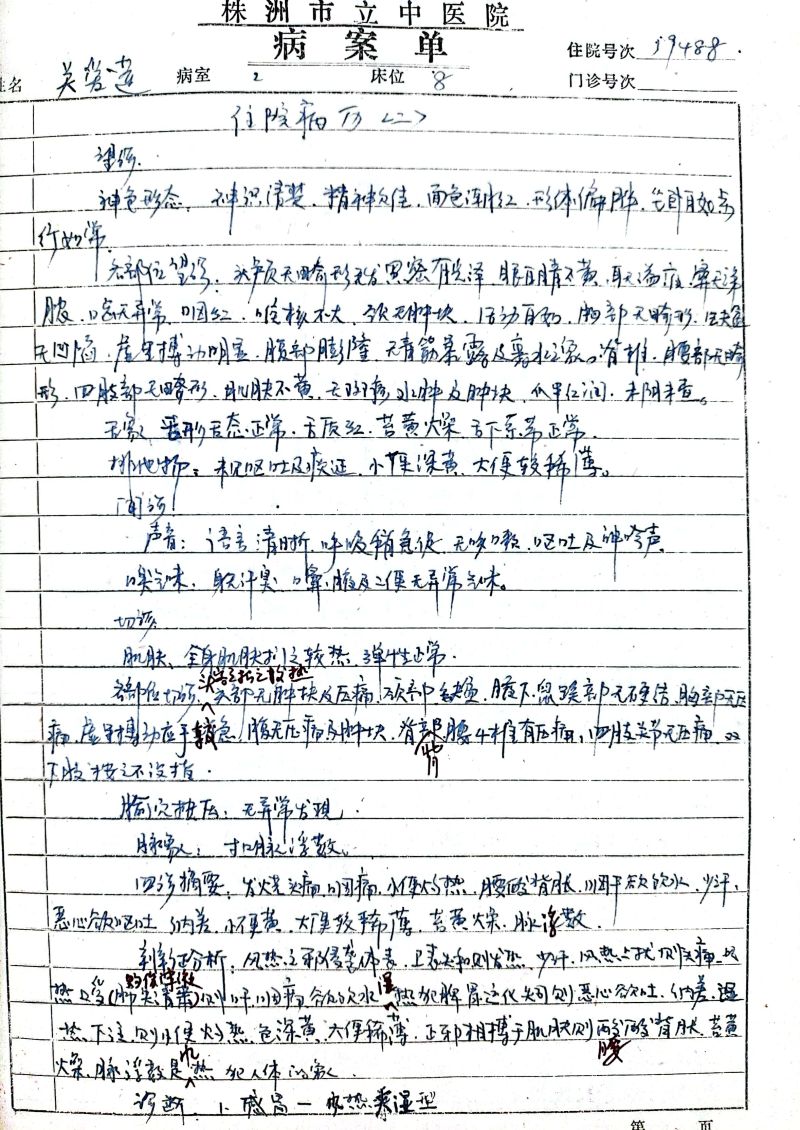 株洲市立中医院
病案单
住院号次 19488
姓名 吴爱莲 病室 2 床位 8 门诊号次
住院病历<二>
望诊.
神色形态: 神识清楚、精神欠佳、面色潮红、形体偏胖、坐卧自如
行如常.
各部位望诊: 头颅无畸形、发黑密有光泽、眼目睛不黄、耳无溢疮、鼻无涕
脓、口唇无异常、咽红、喉核不大、颈无肿块、活动自如、胸部无畸形
无凹陷、虚里搏动明显、腹部膨隆、无青筋暴露及离水之象。脊椎、腰部无畸
形、四肢部无畸形、肌肤不黄、无斑疹、水肿及肿块、爪甲红润、未阴未查。
舌象: 舌形舌态正常、舌质红、苔黄燥、舌下系带正常.
排他物: 未见呕吐及痰证、小便深黄、大便较稀薄。
闻诊:
声音: 语言清晰、呼吸稍急促、无咳嗽、呕吐及呻吟声.
嗅气味: 身无汗臭、口鼻、腋及二便无异常气味。
切诊.
肌肤: 全身肌肤扪之较热、弹性正常.
各部位切诊: 头部扪之较热 头部无肿块及压痛、颈部、缺盆、腋下、鼠蹊部无硬结、胸部无压
痛、虚里搏动应手较急、腹无压痛及肿块、脊部腰4椎有压痛、四肢关节无压痛、双
下肢按之不没指.
腧穴按压: 无异常发现.
脉象: 寸口脉浮数。
四诊摘要: 发烧头痛、咽痛、小便灼热、腰酸背胀、咽干欲饮水、少汗、
恶心欲呕吐、纳差、小便黄、大便较稀薄、苔黄燥、脉浮数.
辨证分析: 风热之邪侵袭体表、卫表失和则发热、少汗、风热上扰则头痛、
热(肺失清肃)则口干、咽痛、欲饮水、湿热犯脾胃运化失司则恶心欲吐、纳差、湿
热下注则小便灼热、色深黄、大便稀薄、正邪相搏于肌肤则腰酸背胀、苔黄
燥、脉浮数是风热犯人体之象.
诊断: 1. 感冒—风热夹湿型
第 页